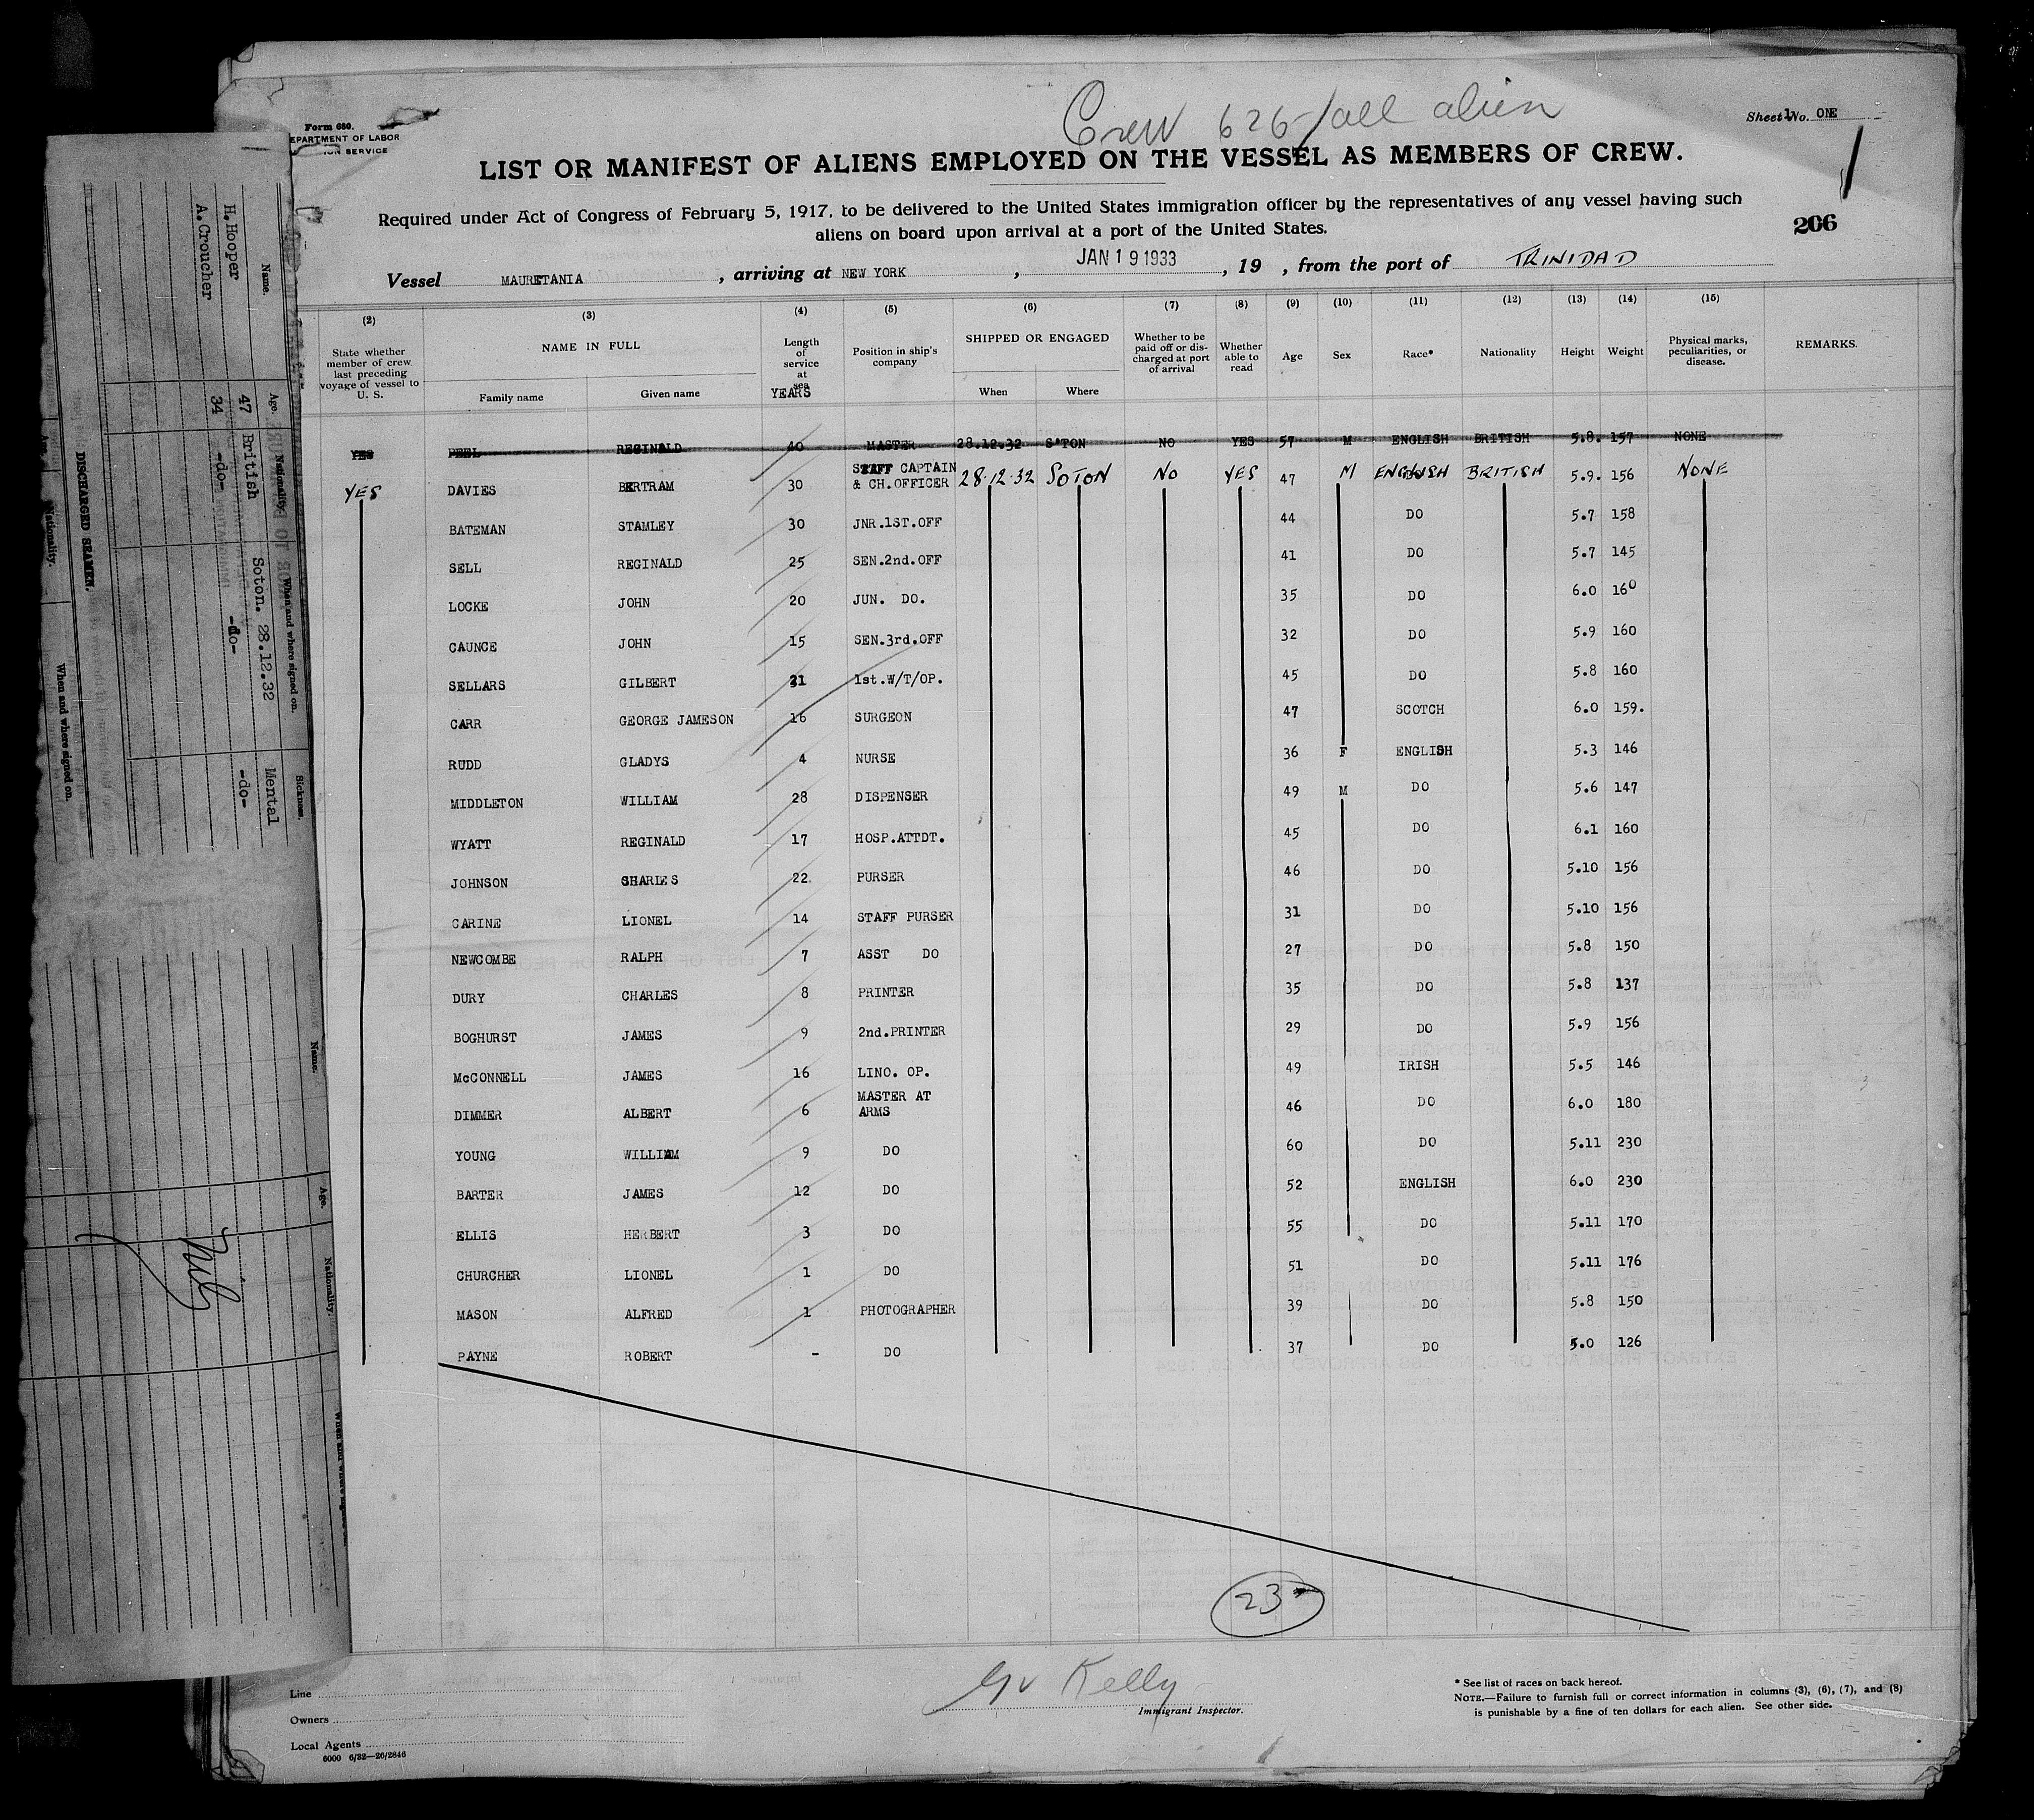 Form 680.
EPARTMENT OF LABOR
ION SERVICE
Crew 626 / all alien
Sheet No. ONE
1
LIST OR MANIFEST OF ALIENS EMPLOYED ON THE VESSEL AS MEMBERS OF CREW.
Required under Act of Congress of February 5, 1917, to be delivered to the United States immigration officer by the representatives of any vessel having such
aliens on board upon arrival at a port of the United States.
206
Vessel MAURETANIA, arriving at NEW YORK, JAN 19 1933, 19 , from the port of TRINIDAD
(2) (3) (4) (5) (6) (7) (8) (9) (10) (11) (12) (13) (14) (15)
State whether member of crew last preceding voyage of vessel to U. S. NAME IN FULL Length of service at sea YEARS Position in ship's company SHIPPED OR ENGAGED Whether to be paid off or discharged at port of arrival Whether able to read Age Sex Race* Nationality Height Weight Physical marks, peculiarities, or disease. REMARKS.
Family name Given name When Where
YES PEEL REGINALD 40 MASTER 28.12.32 S'TON NO YES 57 M ENGLISH BRITISH 5.8. 157 NONE
YES DAVIES BERTRAM 30 STAFF CAPTAIN & CH.OFFICER 28.12.32 SOTON NO YES 47 M ENGLISH BRITISH 5.9. 156 NONE
BATEMAN STAMLEY 30 JNR.1ST.OFF 44 DO 5.7 158
SELL REGINALD 25 SEN.2nd.OFF 41 DO 5.7 145
LOCKE JOHN 20 JUN. DO. 35 DO 6.0 160
CAUNCE JOHN 15 SEN.3rd.OFF 32 DO 5.9 160
SELLARS GILBERT 21 1st.W/T/OP. 45 DO 5.8 160
CARR GEORGE JAMESON 16 SURGEON 47 SCOTCH 6.0 159.
RUDD GLADYS 4 NURSE 36 F ENGLISH 5.3 146
MIDDLETON WILLIAM 28 DISPENSER 49 M DO 5.6 147
WYATT REGINALD 17 HOSP.ATTDT. 45 DO 6.1 160
JOHNSON CHARLES 22. PURSER 46 DO 5.10 156
CARINE LIONEL 14 STAFF PURSER 31 DO 5.10 156
NEWCOMBE RALPH 7 ASST DO 27 DO 5.8 150
DURY CHARLES 8 PRINTER 35 DO 5.8 137
BOGHURST JAMES 9 2nd.PRINTER 29 DO 5.9 156
McCONNELL JAMES 16 LINO. OP. 49 IRISH 5.5 146
DIMMER ALBERT 6 MASTER AT ARMS 46 DO 6.0 180
YOUNG WILLIAM 9 DO 60 DO 5.11 230
BARTER JAMES 12 DO 52 ENGLISH 6.0 230
ELLIS HERBERT 3 DO 55 DO 5.11 170
CHURCHER LIONEL 1 DO 51 DO 5.11 176
MASON ALFRED 1 PHOTOGRAPHER 39 DO 5.8 150
PAYNE ROBERT - DO 37 DO 5.0 126
23
Kelly
Immigrant Inspector.
Line
Owners
Local Agents
6000 6/32—26/2846
* See list of races on back hereof.
NOTE.—Failure to furnish full or correct information in columns (3), (6), (7), and (8)
is punishable by a fine of ten dollars for each alien. See other side.
Name. Age. Nationality. When and where signed on. Sickness.
H. Hooper 47 British Soton. 28.12.32 Mental
A. Croucher 34 -do- -do- -do-
DISCHARGED SEAMEN.
Age. Nationality. When and where signed on.
Name. Age. Nationality.